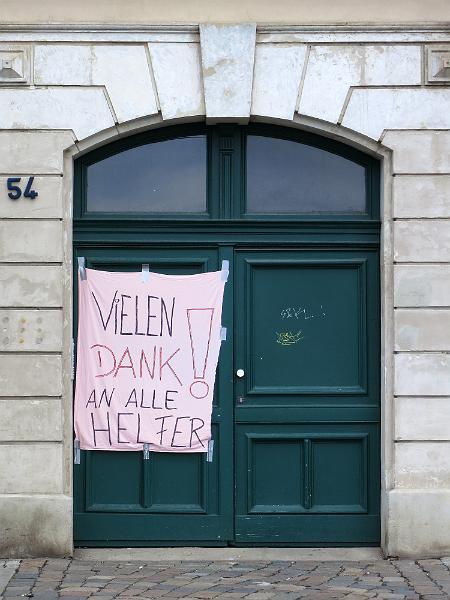 54
VIELEN
DANK!
AN ALLE
HELFER